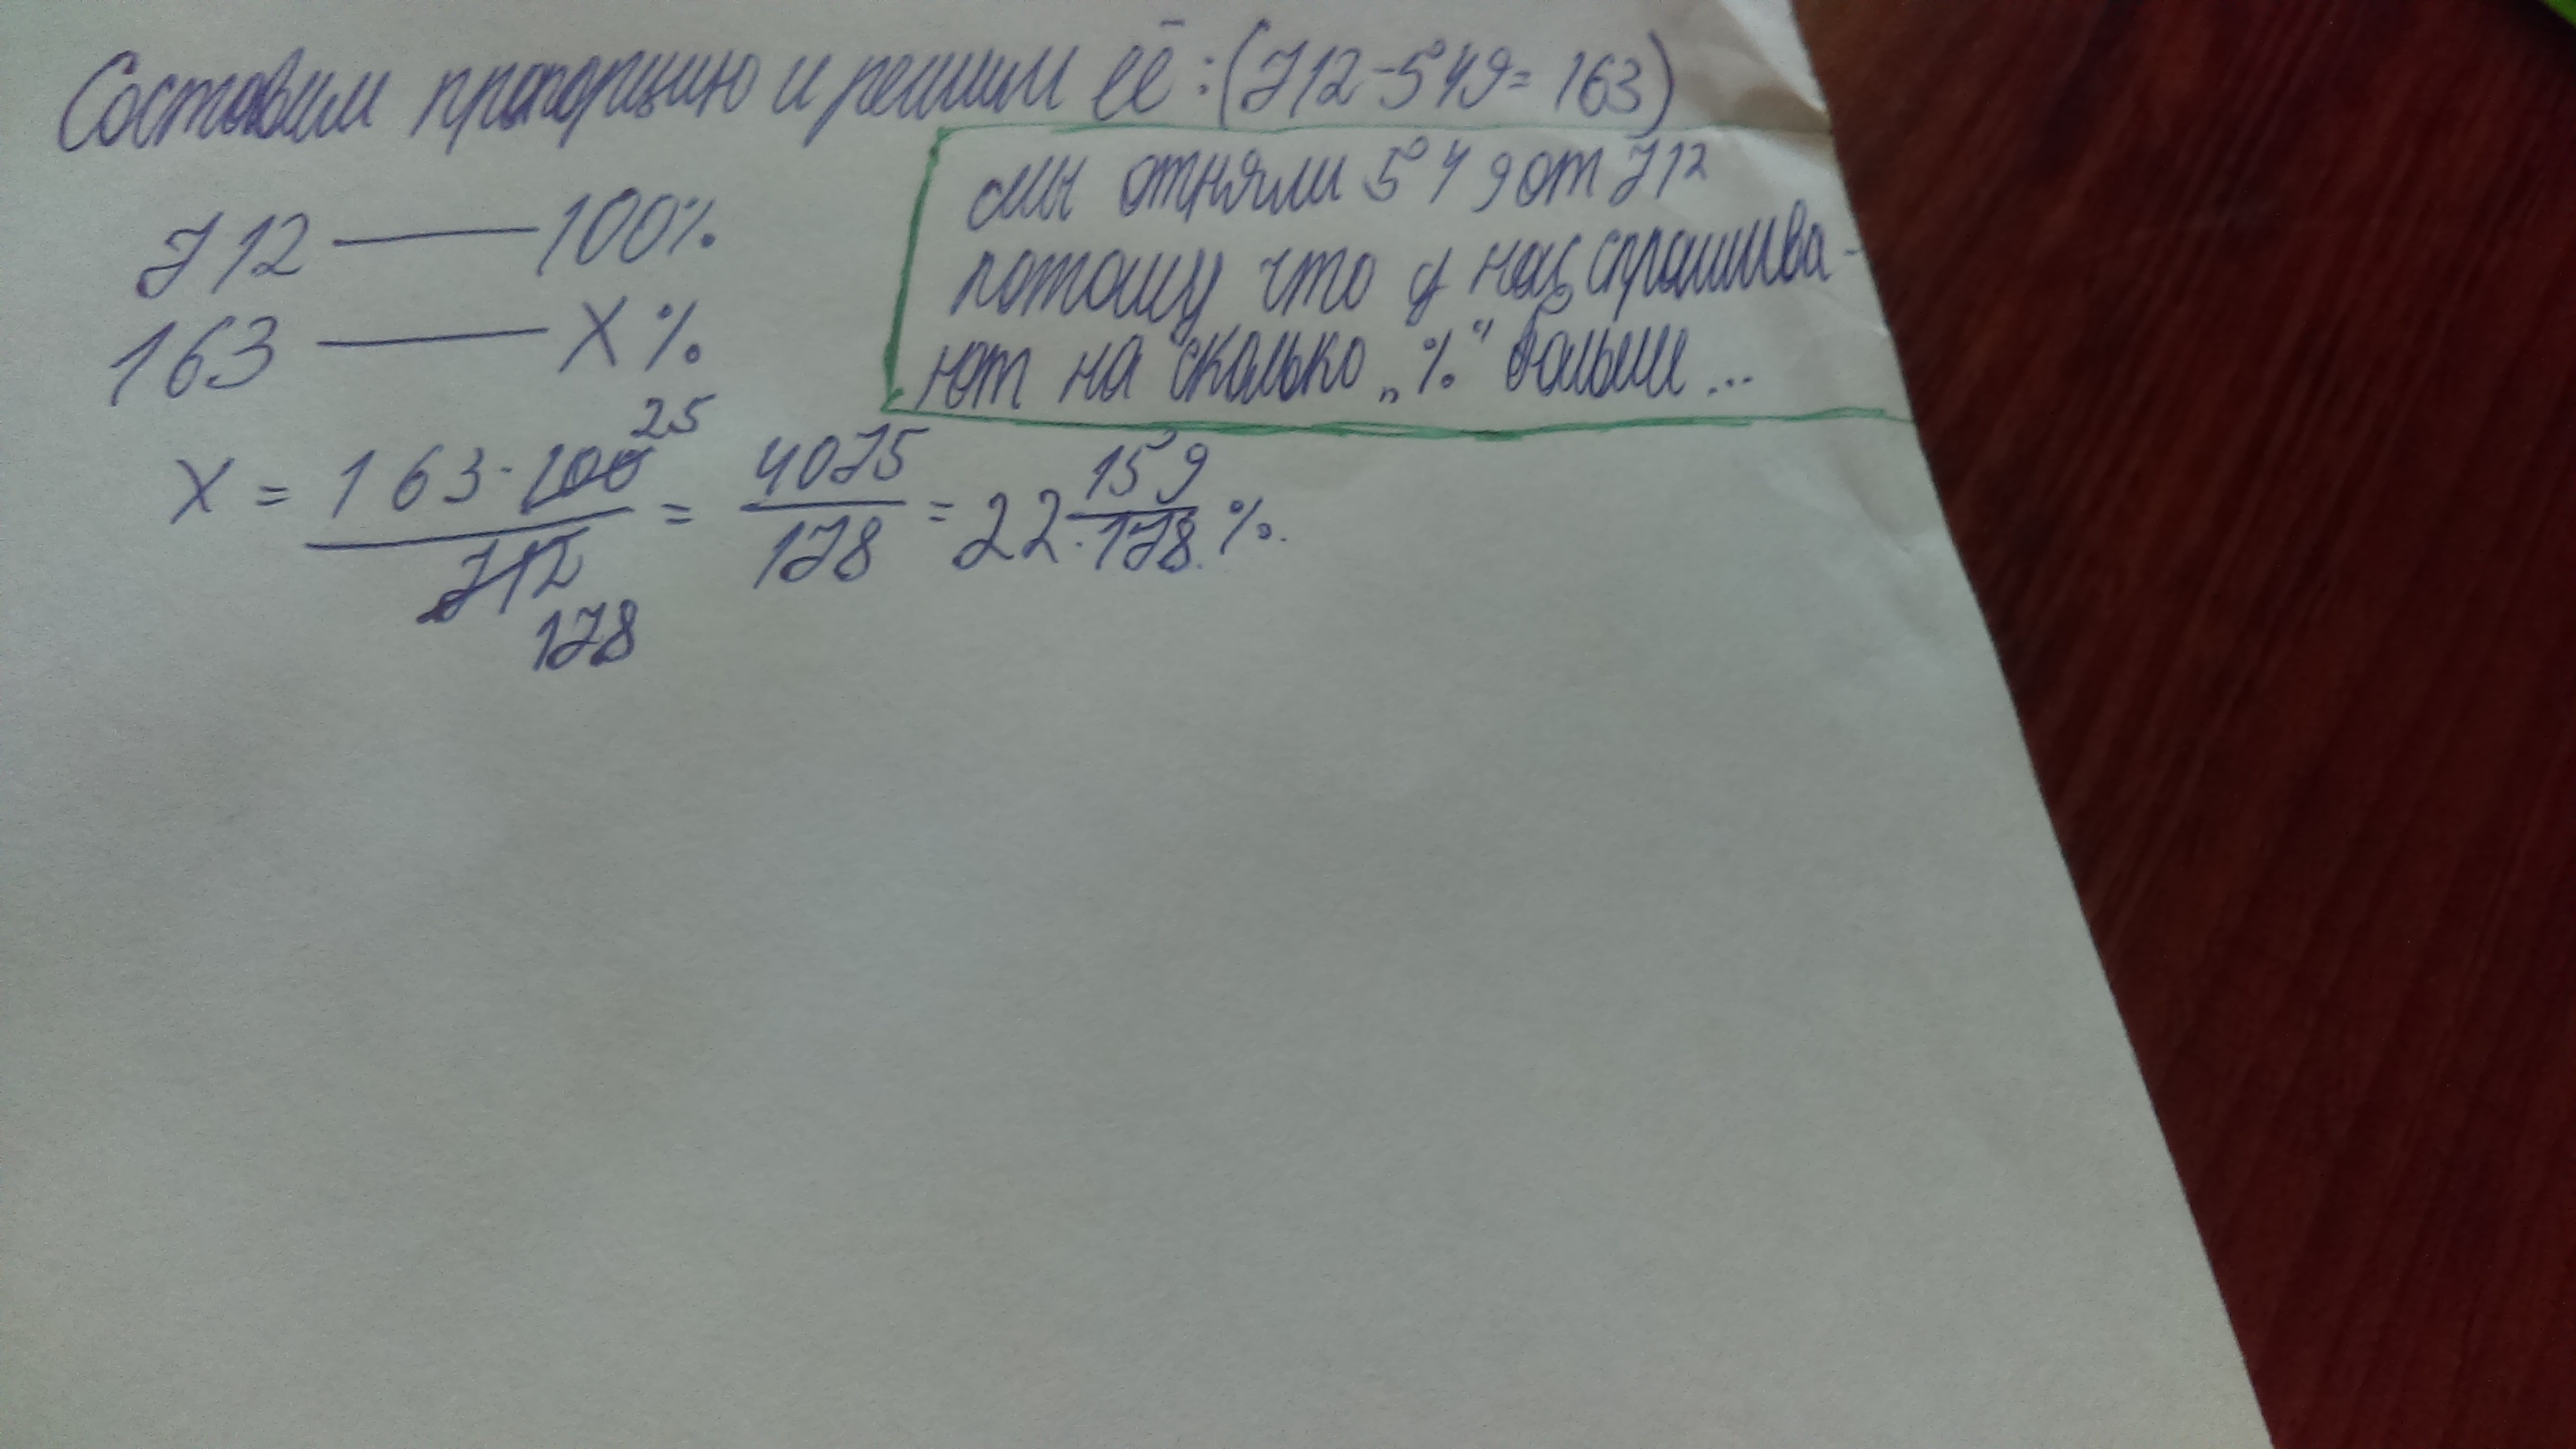 Составим пропорцию и решим её: (712-549=163)
мы отняли 549 от 712
потому что у нас спрашива-
ют на сколько „%" больше ...
712 — 100%
163 — X%
25
X = 163·100/712 = 4075/178 = 22 159/178 %.
178